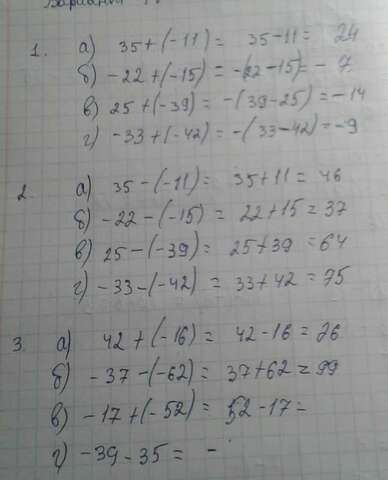 Вариант
1. а) 35+(-11)= 35-11= 24
б) -22+(-15) = -(22-15)= - 7
в) 25+(-39) = -(39-25)=-14
г) -33+(-42)= -(33-42)=-9
2. а) 35-(-11)= 35+11=46
б) -22-(-15)= 22+15=37
в) 25-(-39)= 25+39=64
г) -33-(-42) = 33+42=75
3. а) 42+(-16)= 42-16=26
б) -37-(-62)= 37+62=99
в) -17+(-52)= 52-17=
г) -39-35= -